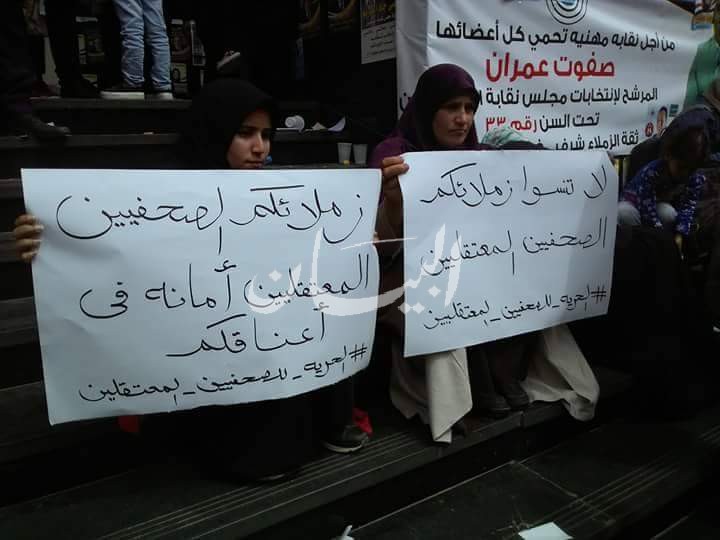 من أجل نقابه مهنيه تحمي كل أعضائها
صفوت عمران
المرشح لإنتخابات مجلس نقابة
تحت السن رقم ٣٣
ثقة الزملاء شرف
زملائكم الصحفيين
المعتقليين أمانه فى
أعناقكم
#الحريه_للصحفيين_المعتقلين
لا تنسوا زملائكم
الصحفيين المعتقلين
#الحريه_للصحفيين_المعتقليين
البيان